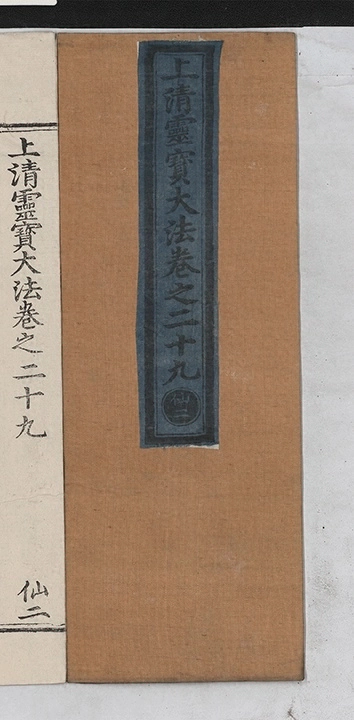 上清靈寶大法卷之二十九
仙二
上清靈寶大法卷之二十九
仙二